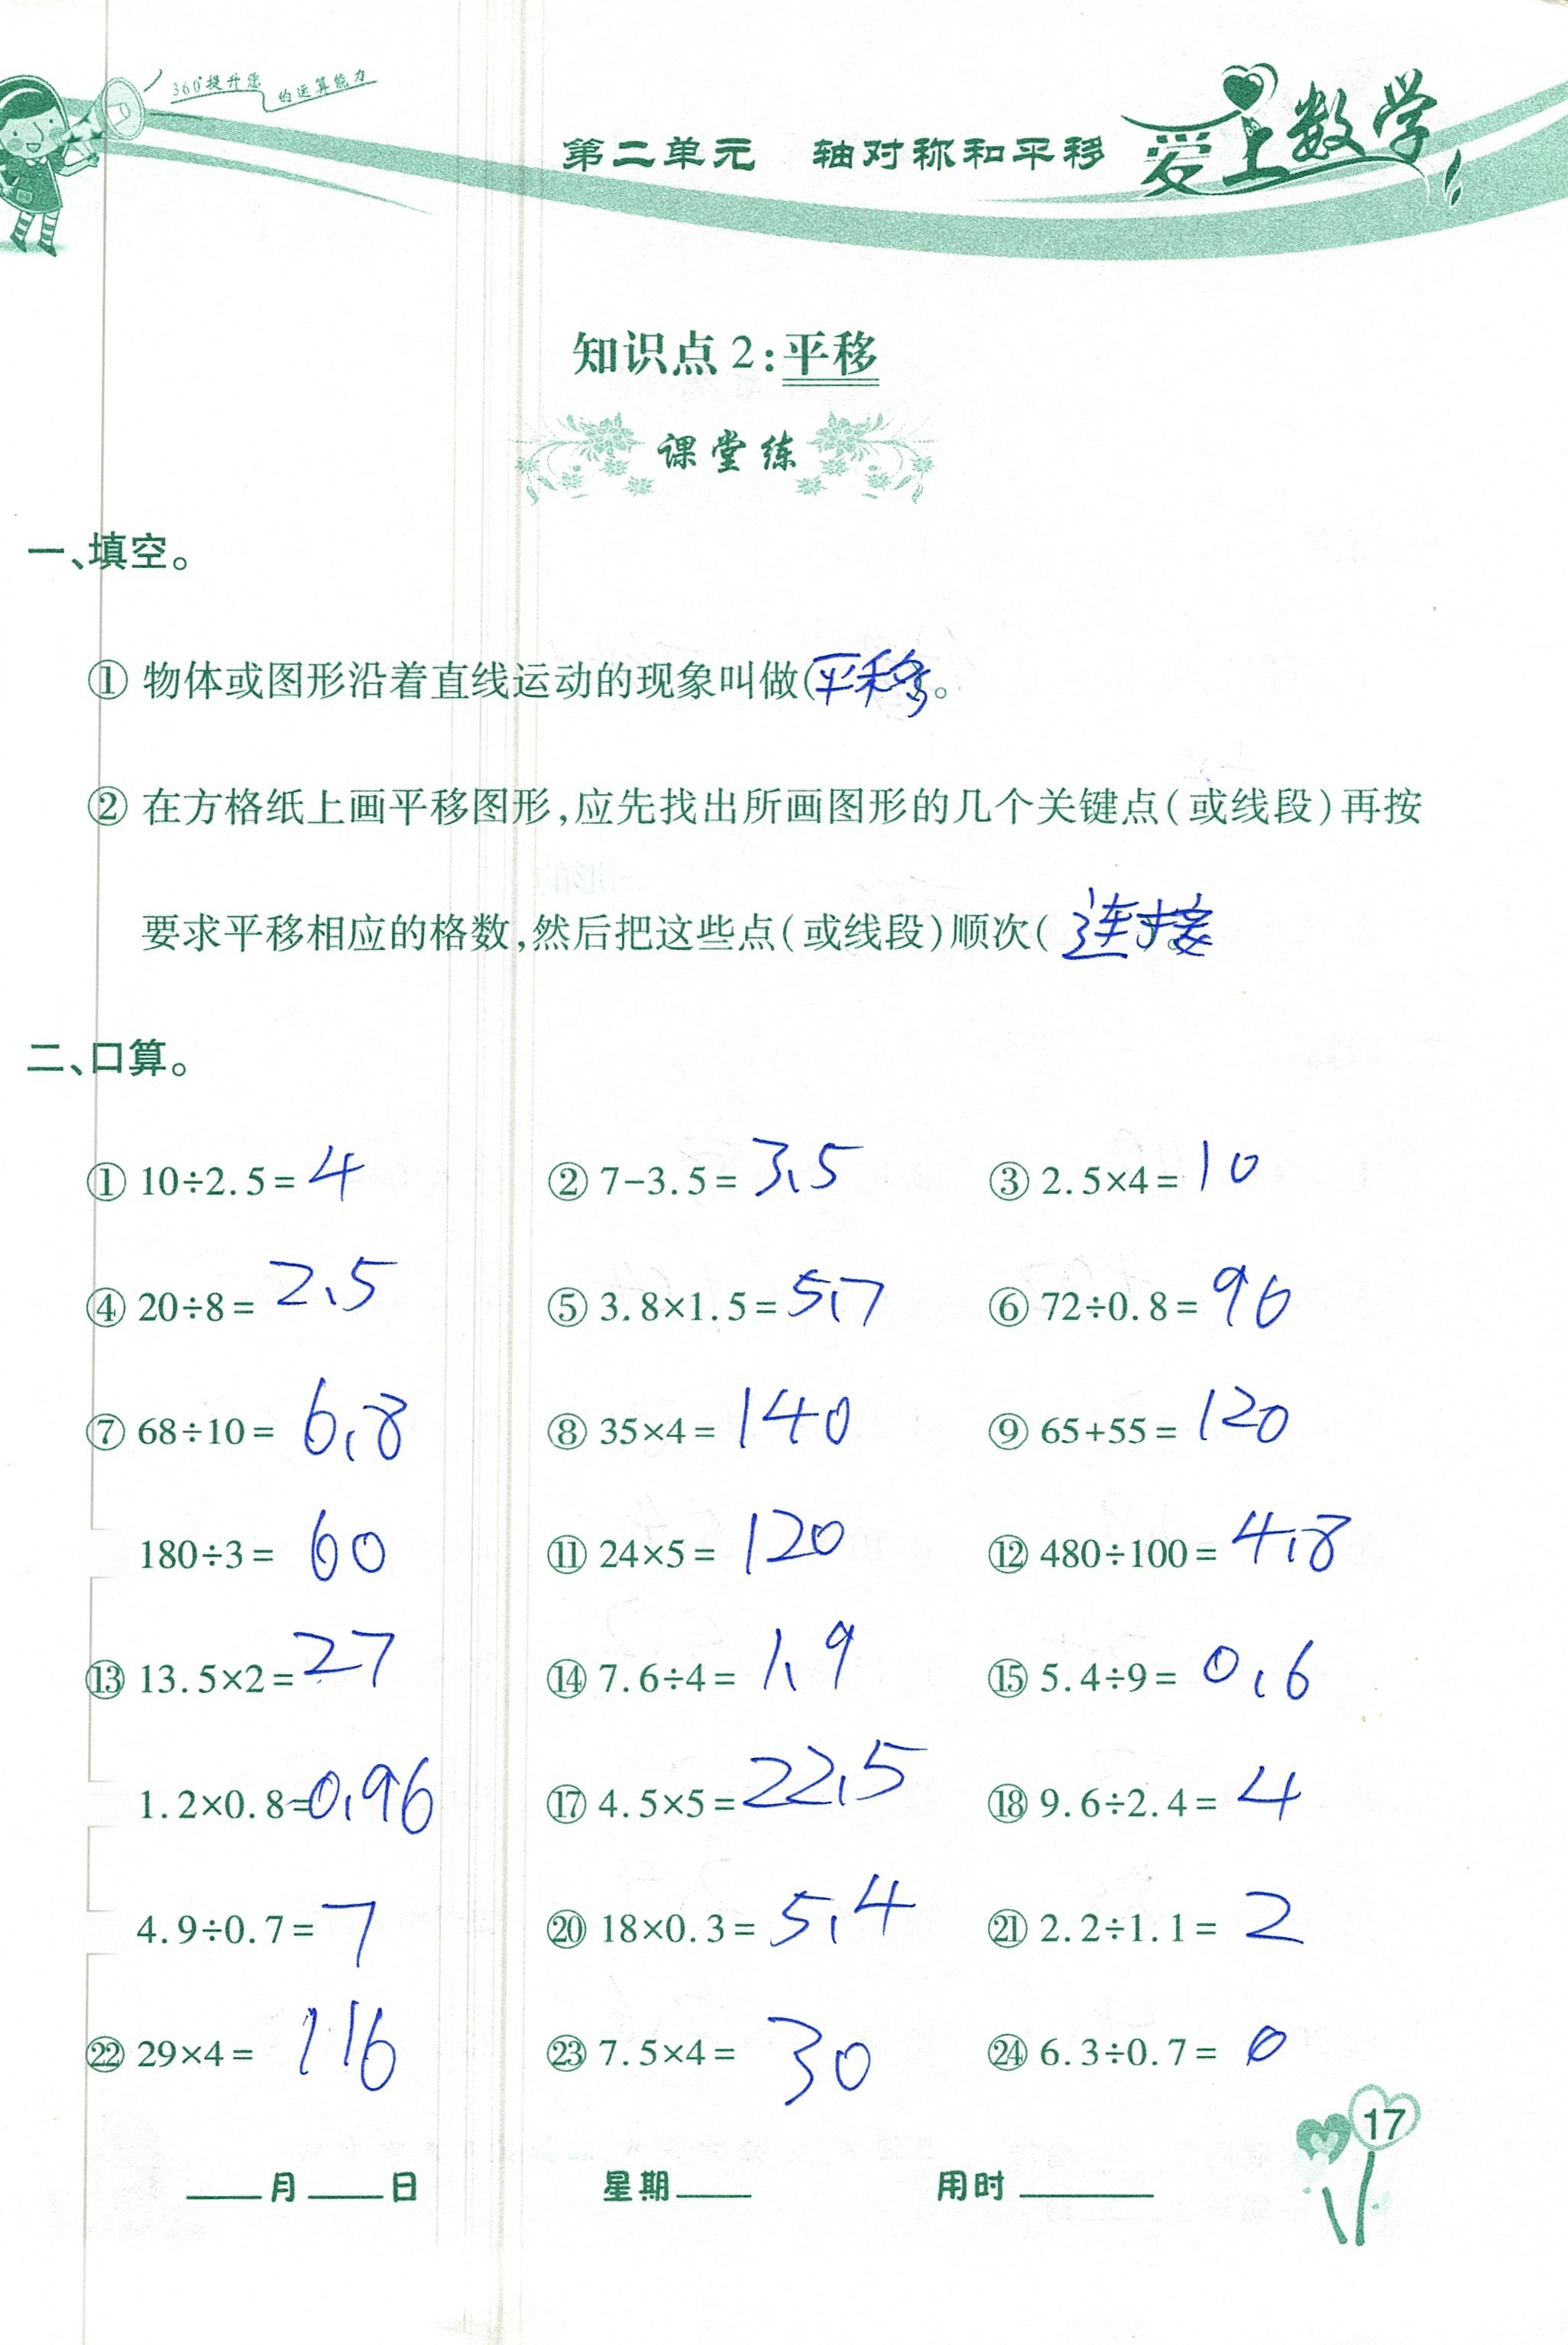 360°提升您的运算能力
第二单元 轴对称和平移 爱上数学
知识点2:平移
课堂练
一、填空。
① 物体或图形沿着直线运动的现象叫做(平移)。
② 在方格纸上画平移图形,应先找出所画图形的几个关键点(或线段)再按
要求平移相应的格数,然后把这些点(或线段)顺次( 连接
二、口算。
① 10÷2.5= 4 ② 7-3.5= 3.5 ③ 2.5×4= 10
④ 20÷8= 2.5 ⑤ 3.8×1.5= 5.7 ⑥ 72÷0.8= 90
⑦ 68÷10= 6.8 ⑧ 35×4= 140 ⑨ 65+55= 120
180÷3= 60 ⑪ 24×5= 120 ⑫ 480÷100= 4.8
⑬ 13.5×2= 27 ⑭ 7.6÷4= 1.9 ⑮ 5.4÷9= 0.6
1.2×0.8=0.96 ⑰ 4.5×5= 22.5 ⑱ 9.6÷2.4= 4
4.9÷0.7= 7 ⑳ 18×0.3= 5.4 ㉑ 2.2÷1.1= 2
㉒ 29×4= 116 ㉓ 7.5×4= 30 ㉔ 6.3÷0.7= 0
17
____月____日 星期____ 用时______